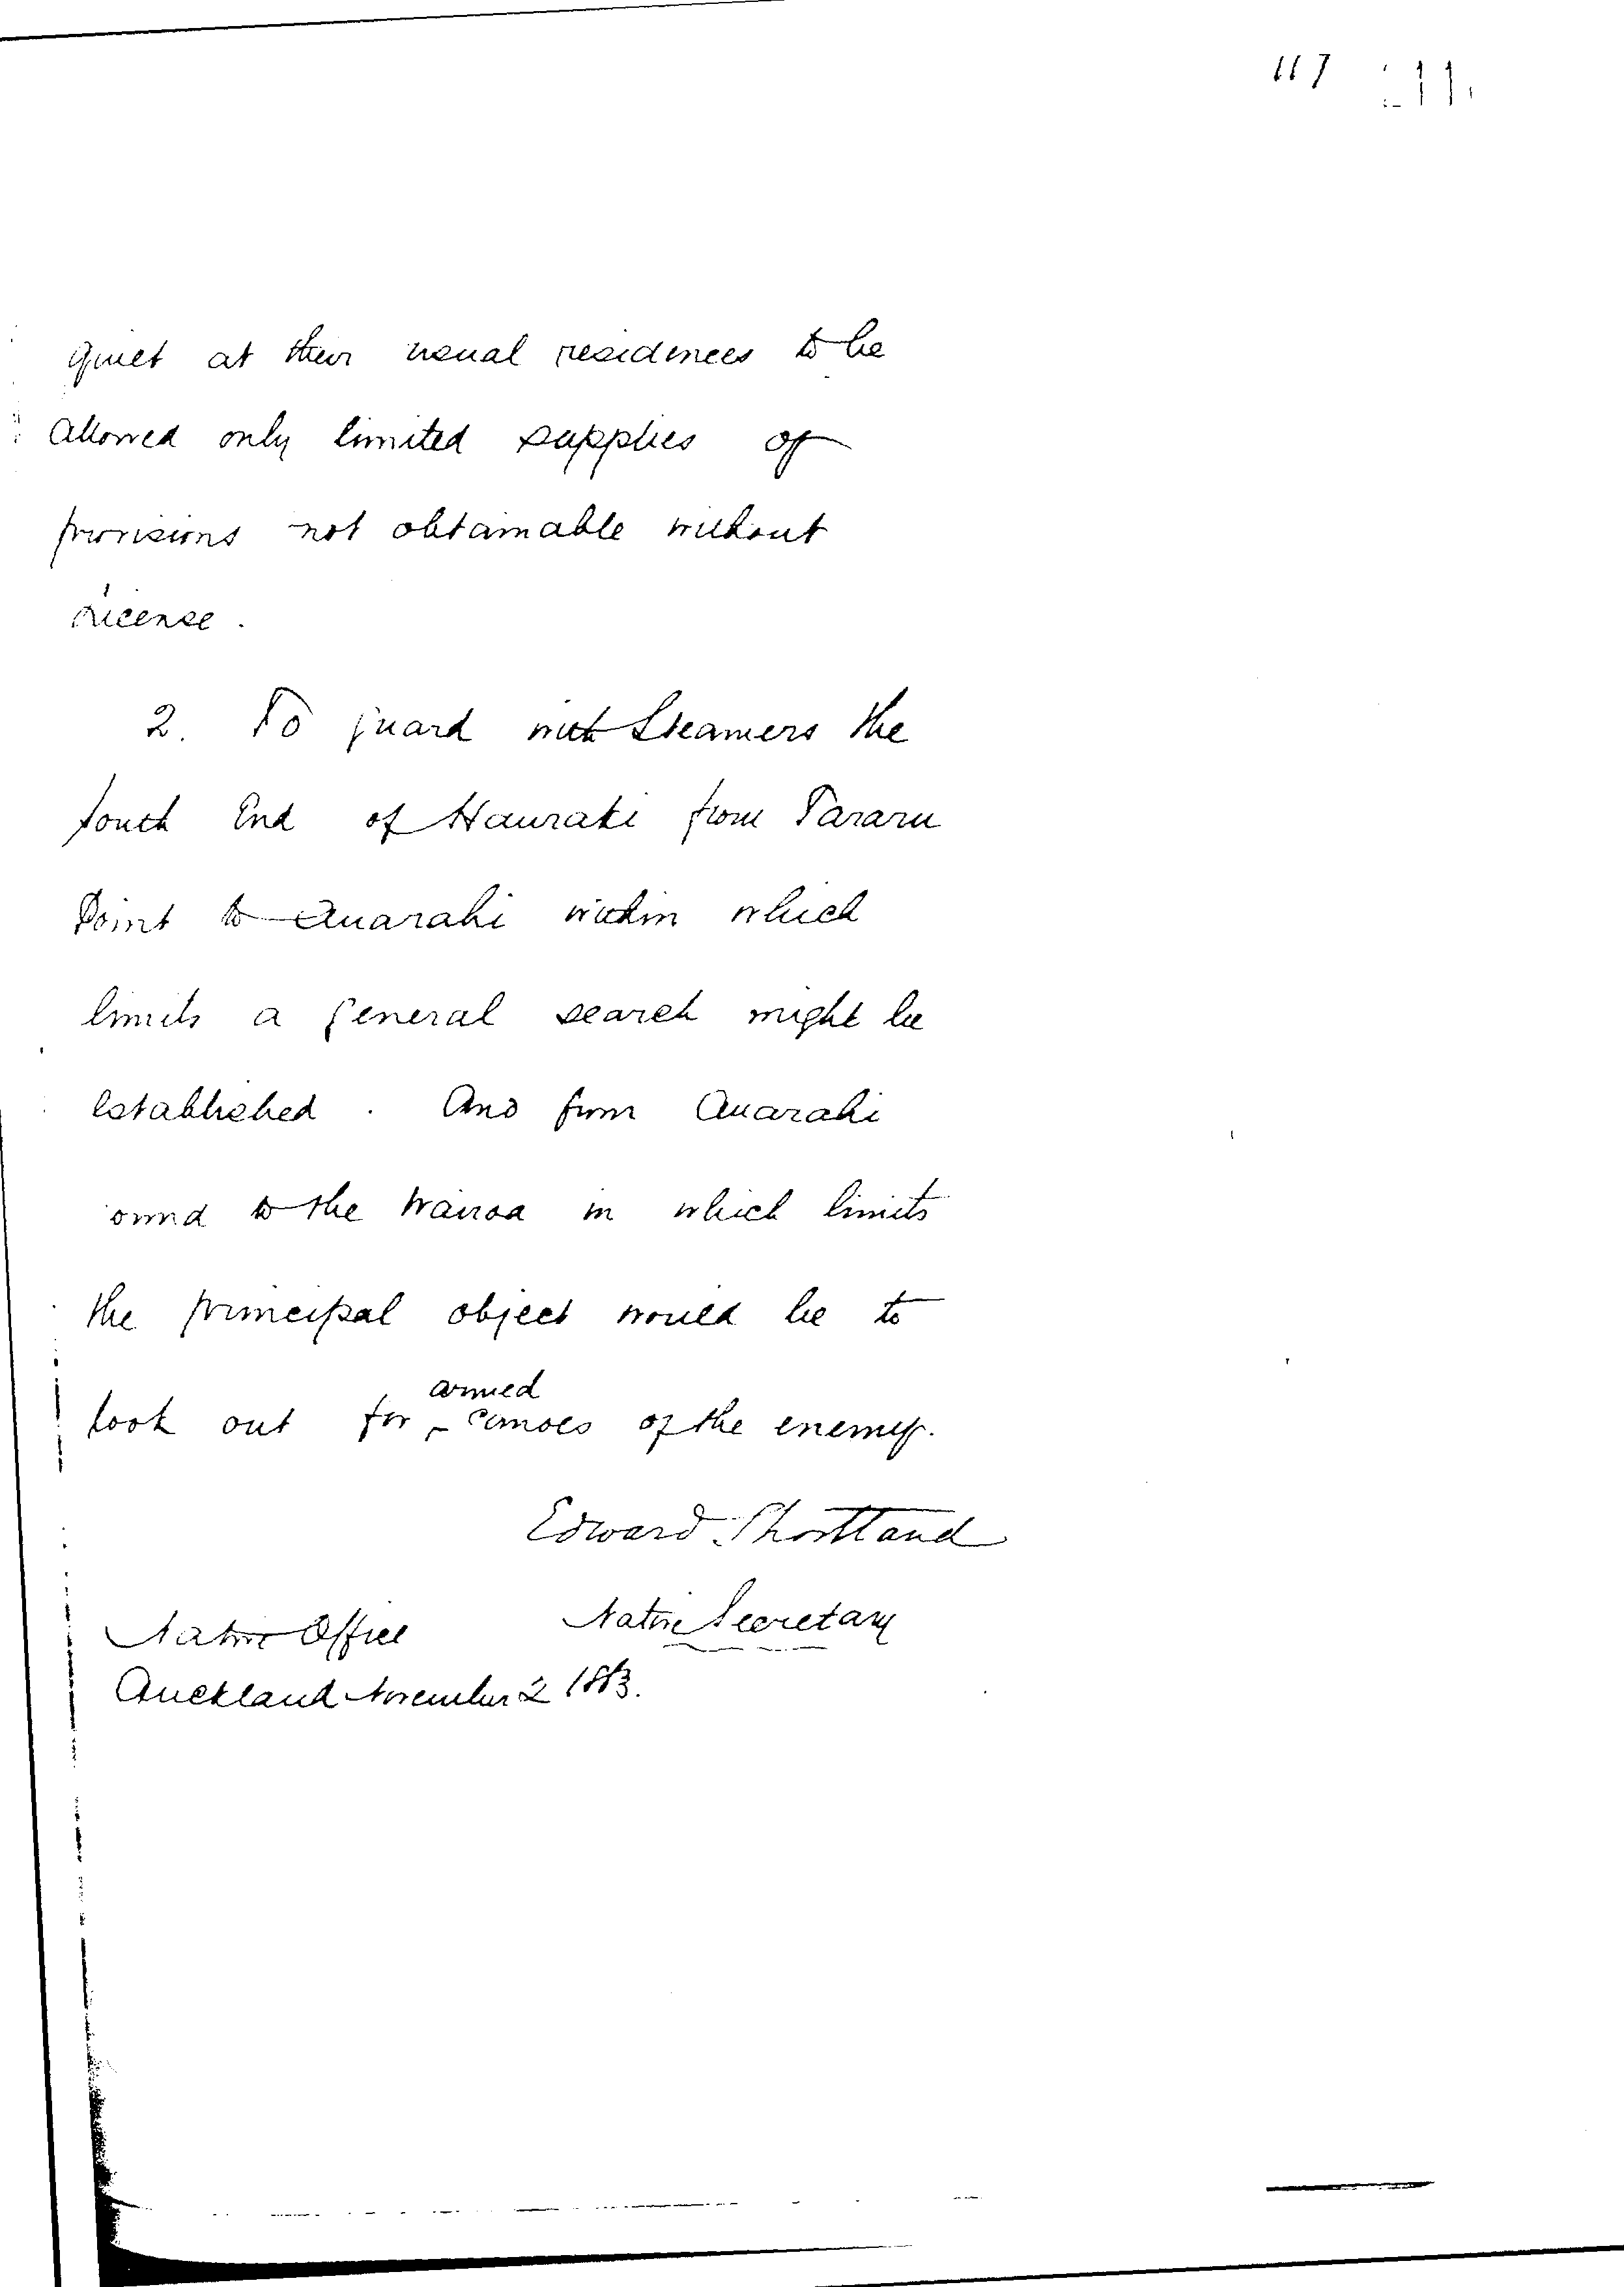 117
quiet at their usual residences to be
allowed only limited supplies of
provisions not obtainable without
license.
2. To guard with Steamers the
South End of Hauraki from Tararu
Point to Auarahi within which
limits a general search might be
established. And from Auarahi
round to the Wairoa in which limits
the principal object would be to
armed
look out for canoes of the enemy.
Edward Shortland
Native Secretary
Native Office
Auckland November 2 1863.